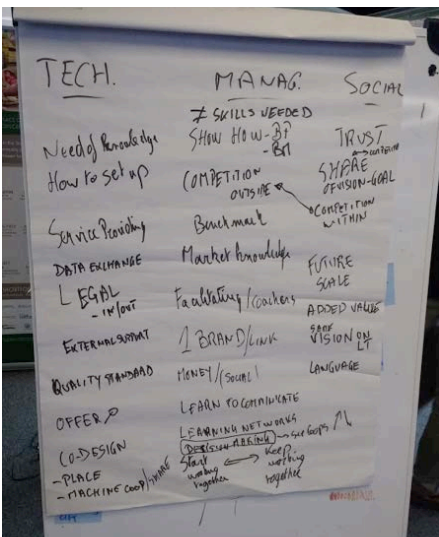 TECH.
Need of knowledge
How to set up
Service Providing
DATA EXCHANGE
LEGAL
- IN/OUT
EXTERNAL SUPPORT
QUALITY STANDARD
OFFER ↗
CO-DESIGN
- PLACE
- MACHINE COOP/SHARE
MANAG.
≠ SKILLS NEEDED
SHOW HOW - BP
- BM
COMPETITION
OUTSIDE
Benchmark
Market knowledge
Facilitating/Coachers
1 BRAND/LINK
MONEY/(SOCIAL)
LEARN TO COMMUNICATE
LEARNING NETWORKS
DECISION MAKING → SUBGOPS ↑↓
Start ↔ Keep
working working
together together
SOCIAL
TRUST
SHARE
OF VISION-GOAL
COMPETITION
WITHIN
FUTURE
SCALE
ADDED VALUE
SAME
VISION ON
LT
LANGUAGE